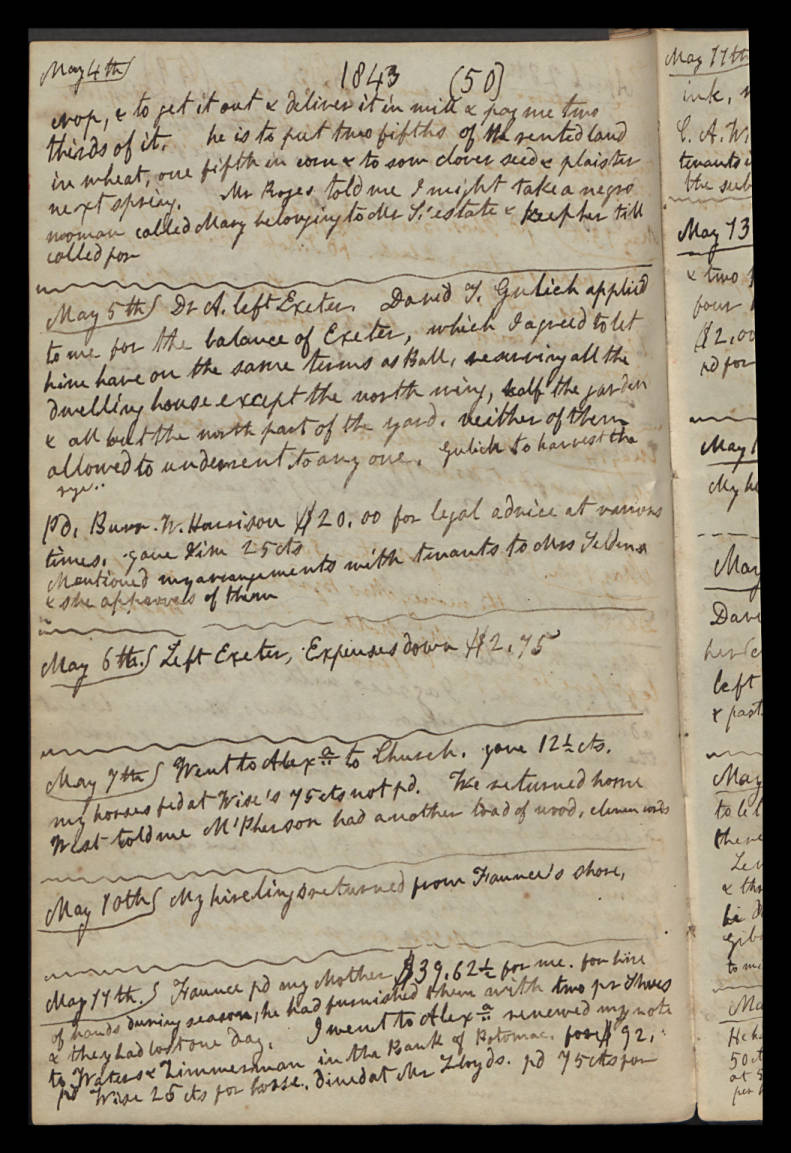 May 4th
1843 (50)
crop, & to get it out & deliver it in mill & pay me two
thirds of it. he is to put two fifths of the rented land
in wheat, one fifth in corn & to sow clover seed & plaister
next spring. Mr Roges told me I might take a negro
woman called Mary belonging to Mr S.' estate & keep her till
called for
May 5th Dr A. left Exeter. David J. Gulich applied
to me for the balance of Exeter, which I agreed to let
him have on the same terms as Ball, reserving all the
dwelling house except the north wing, half the garden
& all but the north part of the yard. neither of them
allowed to underrent to any one. Gulich to harvest the
rye
Pd. Burr. W. Harrison $20.00 for legal advice at various
times. gave Jim 25cts
Mentioned my arrangements with tenants to Mrs Seldens
& she approves of them
May 6th. Left Exeter, Expenses down $2.75
May 7th Went to Alexa to Church. gave 12½cts.
my horses fed at Wise's 75cts not pd. We returned home
West told me McPherson had another load of wood, eleven cords
May 10th My hirelings returned from Faunce's shore,
May 11th. Faunce pd my Mother $39.62½ for me. for hire
of hands during season, he had furnished them with two pr shoes
& they had lost one day. I went to Alexa renewed my note
to Waters & Zimmerman in the Bank of Potomac for $92.
pd Wise 25cts for horse. Dined at Mr Lloyds. pd 75cts for
May 11th
ink,
C. A. W
tenants
the
May 13
& two
four
$2.00
pd for
May 1
My
May
Davi
left
& past
May
to let
there
& th
to m
Ma
50ct
at
per